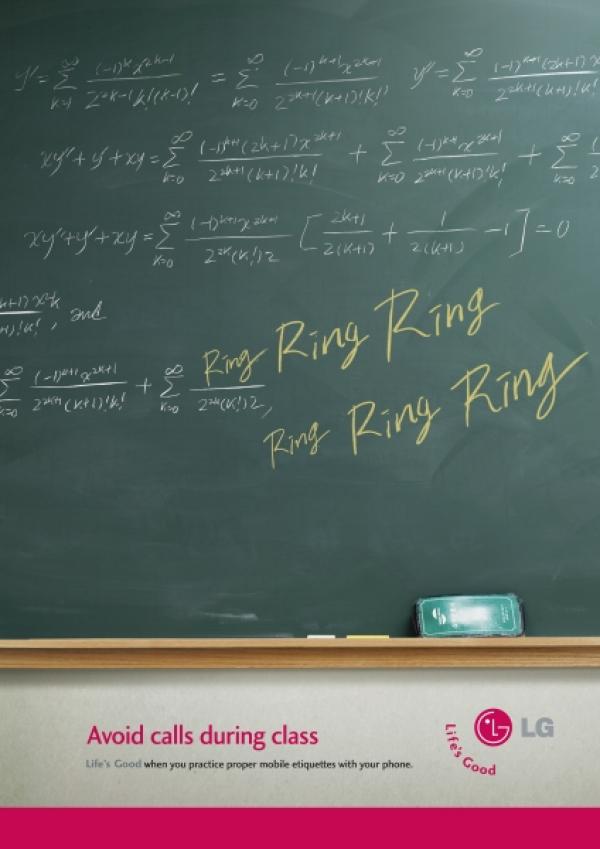 y' = ∑_{k=1}^{∞} (-1)^k x^{2k-1} / 2^{2k-1} k!(k-1)! = ∑_{k=0}^{∞} (-1)^{k+1} x^{2k+1} / 2^{2k+1} (k+1)! k!   y'' = ∑_{k=0}^{∞} (-1)^{k+1} (2k+1) x / 2^{2k+1} (k+1)! k!
xy'' + y' + xy = ∑_{k=0}^{∞} (-1)^{k+1} (2k+1) x^{2k+1} / 2^{2k+1} (k+1)! k! + ∑_{k=0}^{∞} (-1)^{k+1} x^{2k+1} / 2^{2k+1} (k+1)! k! + ∑_{k=0}^{∞}
xy'' + y' + xy = ∑_{k=0}^{∞} (-1)^{k+1} x^{2k+1} / 2^{2k} (k!)2 [ 2k+1 / 2(k+1) + 1 / 2(k+1) - 1 ] = 0
, and
Ring Ring Ring
∑_{k=0}^{∞} (-1)^{k+1} x^{2k+1} / 2^{2k+1} (k+1)! k! + ∑_{k=0}^{∞} / 2^{2k} (k!)2,
Ring Ring Ring
Avoid calls during class
Life's Good when you practice proper mobile etiquettes with your phone.
LG
Life's Good